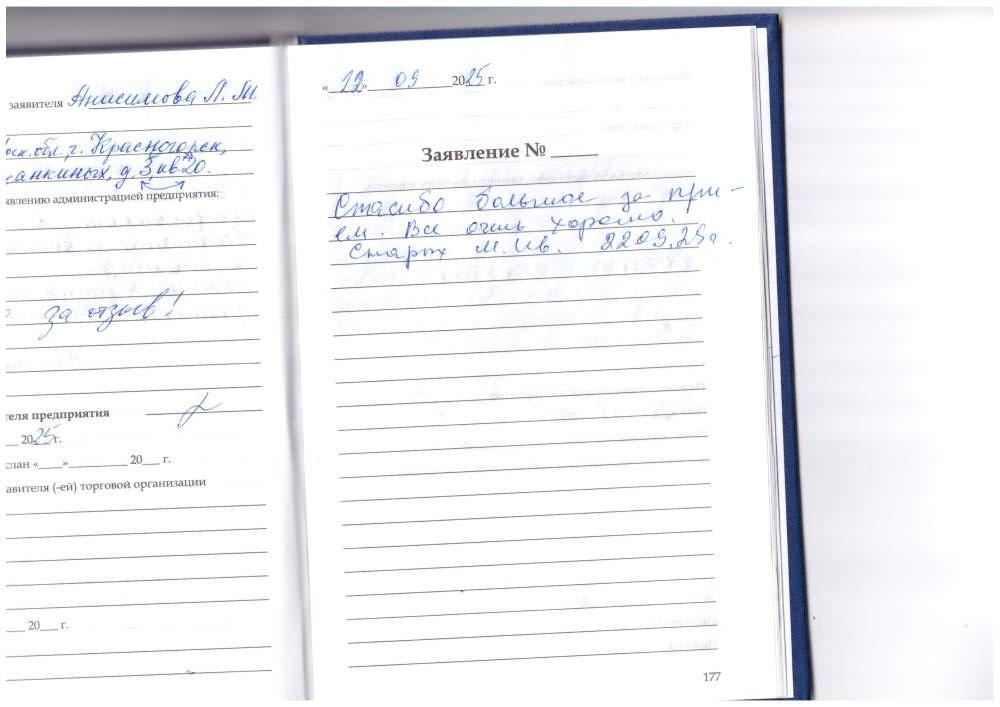 заявителя Анисимова Л. М.
обл., г. Красногорск,
д. 3, кв. 20.
явлению администрацией предприятия:
за отзыв!
теля предприятия
2025г.
слан «___»_________ 20___ г.
авителя (-ей) торговой организации
___ 20___ г.
«22» 09 2025 г.
Заявление № _____
Спасибо большое за при-
ем. Все очень хорошо.
Старых М. Ив. 22 09. 25 г.
177